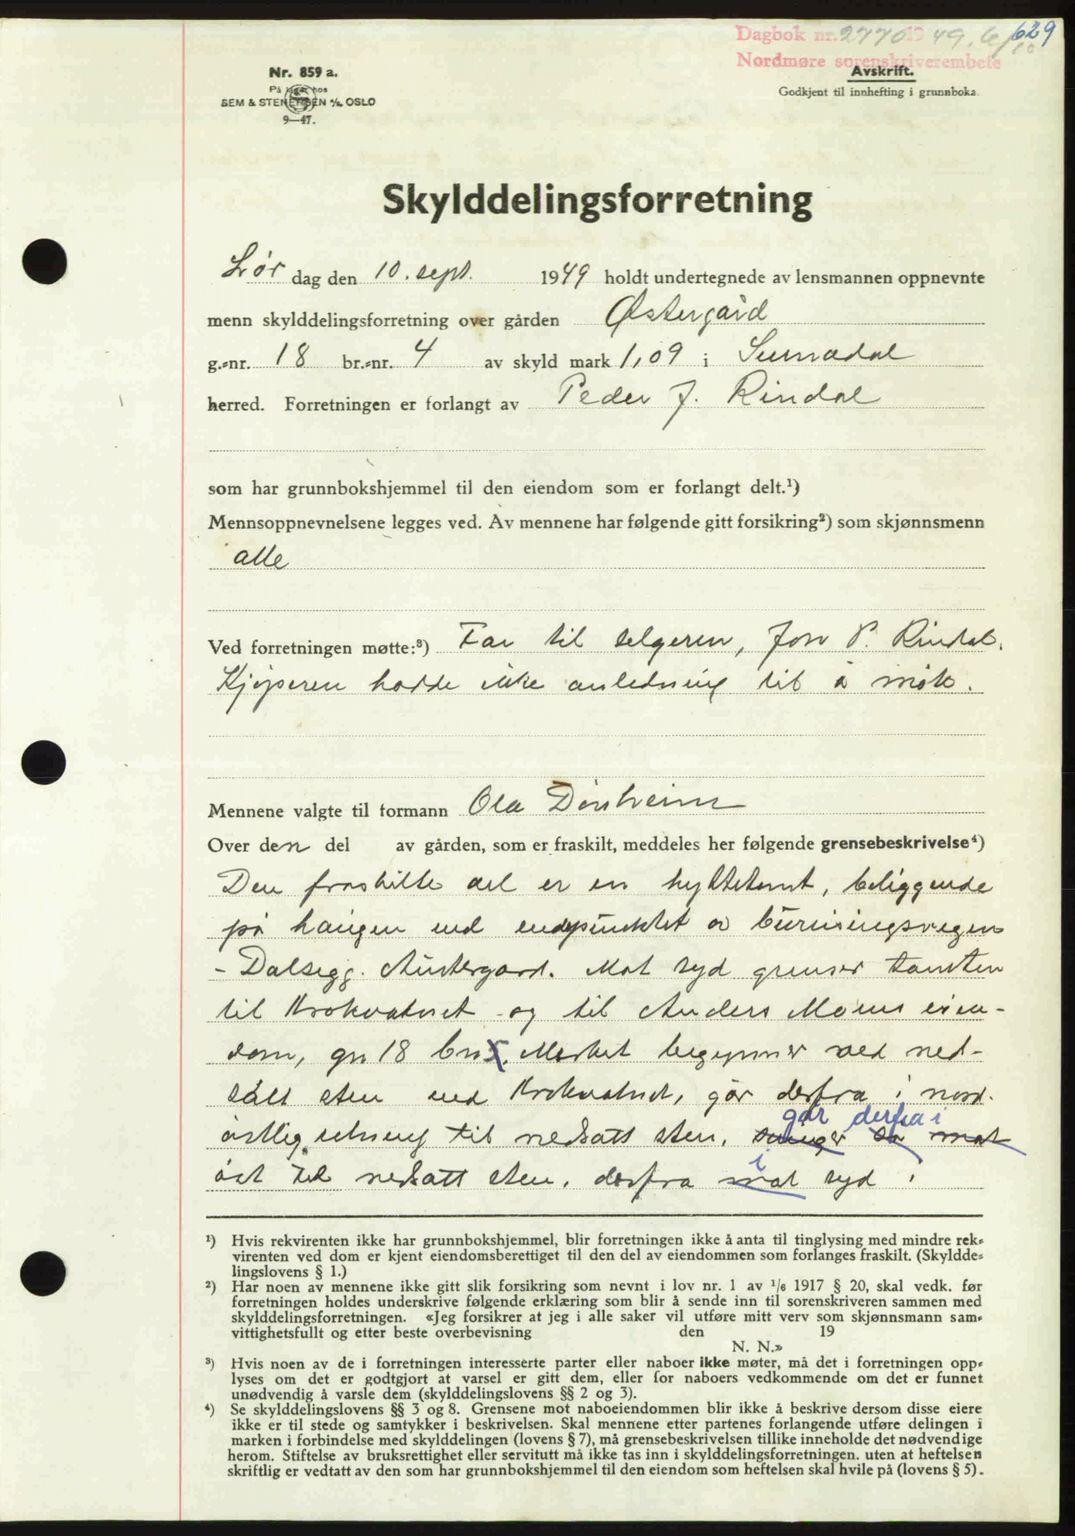 Dagbok nr. 2770 19 49. 6/10 629
Nordmøre sorenskriverembete
Nr. 859 a.
På lager hos
SEM & STENERSEN A/S, OSLO
9—47.
Avskrift.
Godkjent til innhefting i grunnboka.
Skylddelingsforretning
Lør dag den 10. sept. 1949 holdt undertegnede av lensmannen oppnevnte
menn skylddelingsforretning over gården Østergård
g.-nr. 18 br.-nr. 4 av skyld mark 1,09 i Surnadal
herred. Forretningen er forlangt av Peder J. Rindal
som har grunnbokshjemmel til den eiendom som er forlangt delt.¹)
Mennsoppnevnelsene legges ved. Av mennene har følgende gitt forsikring²) som skjønnsmenn
alle
Ved forretningen møtte:³) Far til selgeren, Jon P. Rindal.
Kjøperen hadde ikke anledning til å møte.
Mennene valgte til formann Ola Dønheim
Over den del av gården, som er fraskilt, meddeles her følgende grensebeskrivelse⁴)
Den fraskilte del er en hyttetomt, beliggende
på haugen ved endepunktet av bureisingsvegen
- Dalsegg. Austergard. Mot syd grenser tomten
til Krokvatnet og til Anders Moens eien-
dom, gn 18 bn 5. Merket begynner ved ned-
satt sten ved Krokvatnet, går derfra i nord-
østlig retning til nedsatt sten, svinger så mot går derfra i
øst til nedsatt sten, derfra mot i syd i
¹) Hvis rekvirenten ikke har grunnbokshjemmel, blir forretningen ikke å anta til tinglysing med mindre rek-
virenten ved dom er kjent eiendomsberettiget til den del av eiendommen som forlanges fraskilt. (Skyldde-
lingslovens § 1.)
²) Har noen av mennene ikke gitt slik forsikring som nevnt i lov nr. 1 av ¹/₆ 1917 § 20, skal vedk. før
forretningen holdes underskrive følgende erklæring som blir å sende inn til sorenskriveren sammen med
skylddelingsforretningen. «Jeg forsikrer at jeg i alle saker vil utføre mitt verv som skjønnsmann sam-
vittighetsfullt og etter beste overbevisning den 19
N. N.»
³) Hvis noen av de i forretningen interesserte parter eller naboer ikke møter, må det i forretningen opp-
lyses om det er godtgjort at varsel er gitt dem, eller for naboers vedkommende om det er funnet
unødvendig å varsle dem (skylddelingslovens §§ 2 og 3).
⁴) Se skylddelingslovens §§ 3 og 8. Grensene mot naboeiendommen blir ikke å beskrive dersom disse eiere
ikke er til stede og samtykker i beskrivelsen. Skal mennene etter partenes forlangende utføre delingen i
marken i forbindelse med skylddelingen (lovens § 7), må grensebeskrivelsen tillike inneholde det nødvendige
herom. Stiftelse av bruksrettighet eller servitutt må ikke tas inn i skylddelingsforretningen, uten at heftelsen
skriftlig er vedtatt av den som har grunnbokshjemmel til den eiendom som heftelsen skal hvile på (lovens § 5).